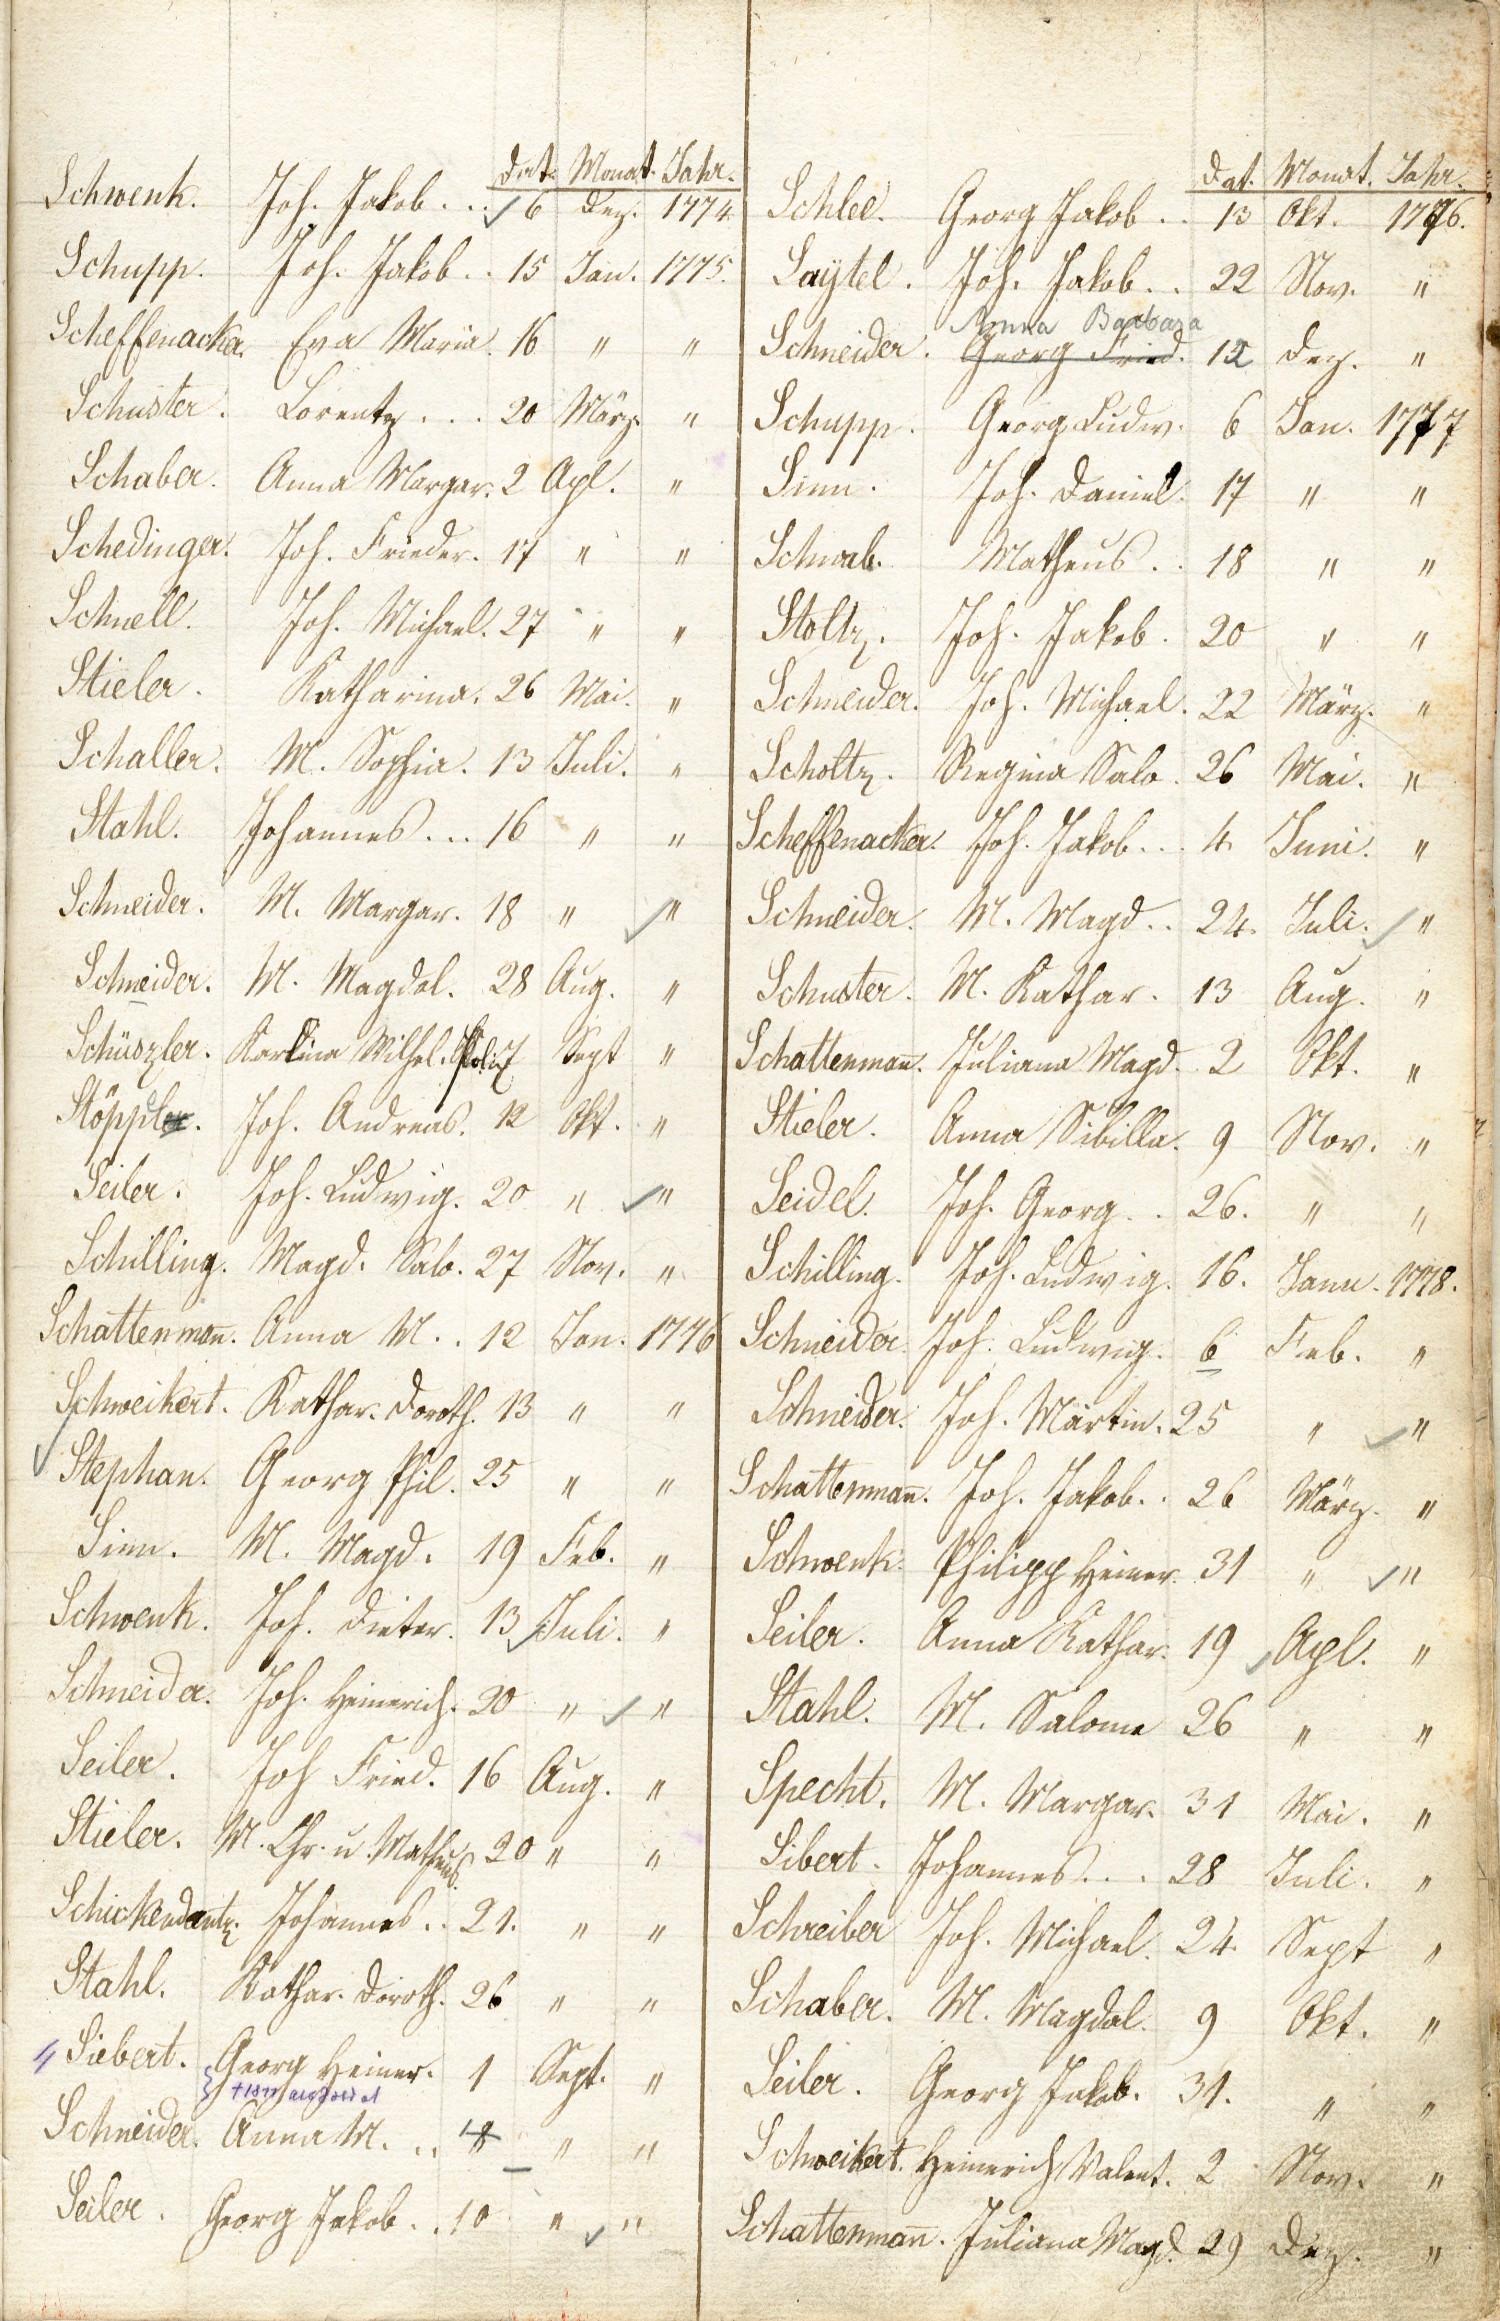 Dat. Monat. Jahr.
Schwenk. Joh. Jakob . . . 6 Dez. 1774.
Schupp. Joh. Jakob . . 15 Jan. 1775.
Scheffenacker. Eva Maria. 16 " "
Schuster. Lorentz . . . 20 März. "
Schaber. Anna Margar. 2 Apl. "
Schedinger. Joh. Frieder. 17 " "
Schnell. Joh. Michael. 27 " "
Stieler. Katharina. 26 Mai. "
Schaller. M. Sophia. 13 Juli. "
Stahl. Johannes . . . 16 " "
Schneider. M. Margar. 18 " "
Schneider. M. Magdal. 28 Aug. "
Schüszler. Karolina Wilhel. 7 Sept "
Stöppler. Joh. Andreas. 12 Okt. "
Seiler. Joh. Ludwig. 20 " "
Schilling. Magd. Salo. 27 Nov. "
Schattenman̄. Anna M. . 12 Jan. 1776
Schweikert. Kathar. Doroth. 13 " "
Stephan. Georg Phil. 25 " "
Sinn. M. Magd. 19 Feb. "
Schwenk. Joh. Dieter. 13 Juli. "
Schneider. Joh. Heinerich. 20 " "
Seiler. Joh Fried. 16 Aug. "
Stieler. M. Chr. u. Matheus. 20 " "
Schickendantz. Johannes . . 21. " "
Stahl. Kathar. Doroth. 26 " "
Siebert. Georg Heiner. 1 Sept. "
Schneider. Anna M. . . 8 " "
Seiler. Georg Jakob . . 10 " "
Dat. Monat. Jahr.
Schlee. Georg Jakob . . 13 Okt. 1776.
Saÿtel. Joh. Jakob . . 22 Nov. "
Anna Barbara
Schneider. Georg Fried. 12 Dez. "
Schupp. Georg Ludw. 6 Jan. 1777
Sinn. Joh. Daniel. 17 " "
Schwab. Matheus . . 18 " "
Stoltz. Joh. Jakob. 20 " "
Schneider. Joh. Michael. 22 März. "
Scholtz. Regina Salo. 26 Mai. "
Scheffenacker. Joh. Jakob . . . 4. Juni. "
Schneider. M. Magd. . 24. Juli. "
Schuster. M. Kathar. 13 Aug. "
Schattenman̄. Juliana Magd. 2 Okt. "
Stieler. Anna Sibilla. 9 Nov. "
Seidel. Joh. Georg . . 26. " "
Schilling. Joh. Ludwig. 16. Janu. 1778.
Schneider. Joh. Ludwig. 6 Feb. "
Schneider. Joh. Martin. 25 " "
Schattenman̄. Joh. Jakob . . 26 März. "
Schwenk. Philipp Heiner. 31 " "
Seiler. Anna Kathar. 19 Apl. "
Stahl. M. Salome 26 " "
Specht. M. Margar. 31 Mai. "
Sibert. Johannes . . . 28 Juli. "
Schreiber Joh. Michael. 24. Sept "
Schaber. M. Magdal. 9 Okt. "
Seiler. Georg Jakob. 31. " "
Schweikert. Heinerich Valent. 2 Nov. "
Schattenman̄. Juliana Magd. 29 Dez. "